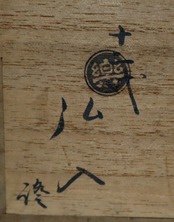 十二代
樂
弘入